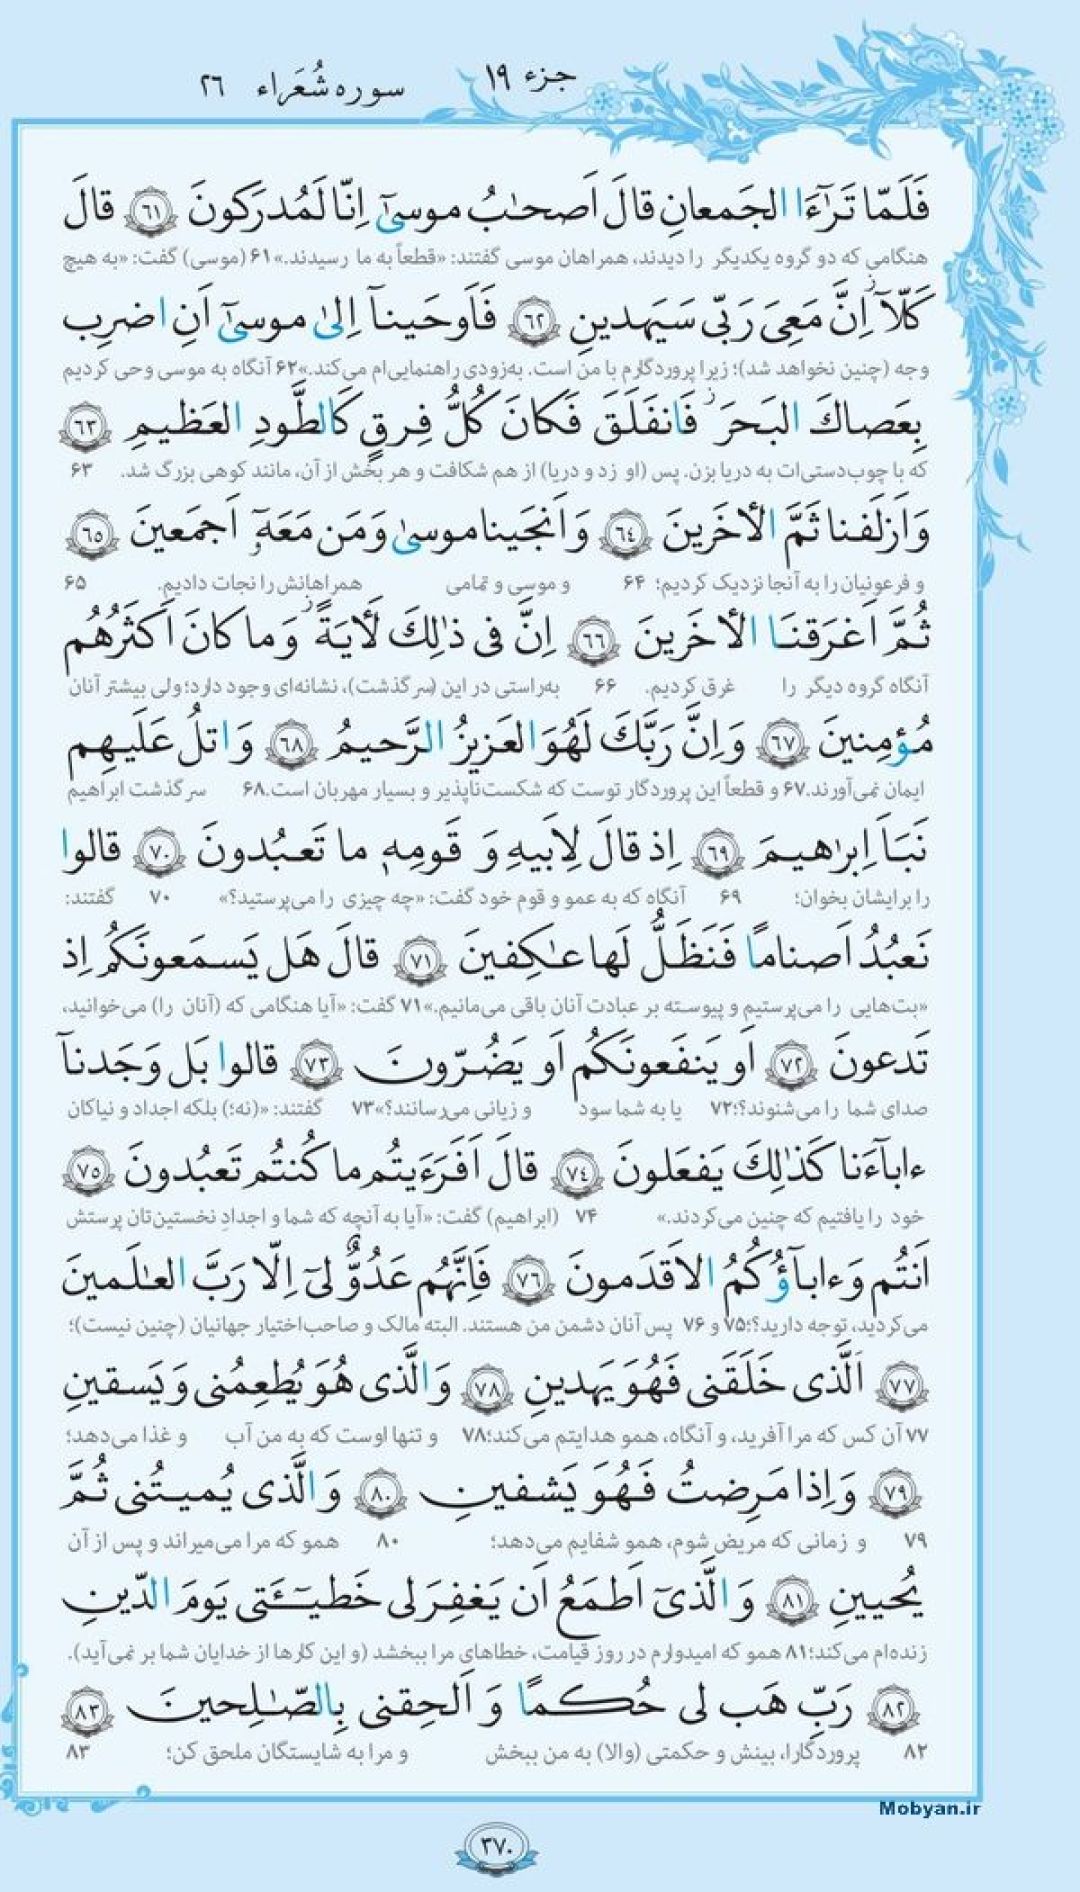 جزء ۱۹
سوره شُعَراء ۲۶
فَلَمّا تَرٰٓءَا الجَمعانِ قالَ اَصحٰبُ موسىٰٓ اِنّا لَمُدرَكونَ ﴿٦١﴾ قالَ
هنگامی که دو گروه یکدیگر را دیدند، همراهان موسی گفتند: «قطعاً به ما رسیدند.»۶۱ (موسی) گفت: «به هیچ
كَلّآ ۖ اِنَّ مَعِىَ رَبّى سَيَهدينِ ﴿٦٢﴾ فَاَوحَينآ اِلىٰ موسىٰٓ اَنِ اضرِب
وجه (چنین نخواهد شد)؛ زیرا پروردگارم با من است. به‌زودی راهنمایی‌ام می‌کند.»۶۲ آنگاه به موسی وحی کردیم
بِعَصاكَ البَحرَ ۖ فَانفَلَقَ فَكانَ كُلُّ فِرقٍ كَالطَّودِ العَظيمِ ﴿٦٣﴾
که با چوب‌دستی‌ات به دریا بزن. پس (او زد و دریا) از هم شکافت و هر بخش از آن، مانند کوهی بزرگ شد. ۶۳
وَاَزلَفنا ثَمَّ الأخَرينَ ﴿٦٤﴾ وَاَنجَينا موسىٰ وَمَن مَعَهٓ اَجمَعينَ ﴿٦٥﴾
و فرعونیان را به آنجا نزدیک کردیم؛ ۶۴ و موسی و تمامی همراهانش را نجات دادیم. ۶۵
ثُمَّ اَغرَقنَا الأخَرينَ ﴿٦٦﴾ اِنَّ فى ذٰلِكَ لَأيَةً ۖ وَما كانَ اَكثَرُهُم
آنگاه گروه دیگر را غرق کردیم. ۶۶ به‌راستی در این (سرگذشت)، نشانه‌ای وجود دارد؛ ولی بیشتر آنان
مُؤمِنينَ ﴿٦٧﴾ وَاِنَّ رَبَّكَ لَهُوَ العَزيزُ الرَّحيمُ ﴿٦٨﴾ وَاتلُ عَلَيهِم
ایمان نمی‌آورند.۶۷ و قطعاً این پروردگار توست که شکست‌ناپذیر و بسیار مهربان است.۶۸ سرگذشت ابراهیم
نَبَاَ اِبرٰهيمَ ﴿٦٩﴾ اِذ قالَ لِاَبيهِ وَ قَومِهٖ ما تَعبُدونَ ﴿٧٠﴾ قالوا
را برایشان بخوان؛ ۶۹ آنگاه که به عمو و قوم خود گفت: «چه چیزی را می‌پرستید؟» ۷۰ گفتند:
نَعبُدُ اَصنامًا فَنَظَلُّ لَها عٰكِفينَ ﴿٧١﴾ قالَ هَل يَسمَعونَكُم اِذ
«بت‌هایی را می‌پرستیم و پیوسته بر عبادت آنان باقی می‌مانیم.»۷۱ گفت: «آیا هنگامی که (آنان را) می‌خوانید،
تَدعونَ ﴿٧٢﴾ اَو يَنفَعونَكُم اَو يَضُرّونَ ﴿٧٣﴾ قالوا بَل وَجَدنآ
صدای شما را می‌شنوند؟؛۷۲ یا به شما سود و زیانی می‌رسانند؟»۷۳ گفتند: «(نه؛) بلکه اجداد و نیاکان
ءابآءَنا كَذٰلِكَ يَفعَلونَ ﴿٧٤﴾ قالَ اَفَرَءَيتُم ما كُنتُم تَعبُدونَ ﴿٧٥﴾
خود را یافتیم که چنین می‌کردند.» ۷۴ (ابراهیم) گفت: «آیا به آنچه که شما و اجدادِ نخستین‌تان پرستش
اَنتُم وَءابآؤُكُمُ الاَقدَمونَ ﴿٧٦﴾ فَاِنَّهُم عَدُوٌّ لىٓ اِلّا رَبَّ العٰلَمينَ
می‌کردید، توجه دارید؟؛۷۵ و ۷۶ پس آنان دشمن من هستند. البته مالک و صاحب‌اختیار جهانیان (چنین نیست)؛
﴿٧٧﴾ اَلَّذى خَلَقَنى فَهُوَ يَهدينِ ﴿٧٨﴾ وَالَّذى هُوَ يُطعِمُنى وَيَسقينِ
۷۷ آن کس که مرا آفرید، و آنگاه، همو هدایتم می‌کند؛۷۸ و تنها اوست که به من آب و غذا می‌دهد؛
﴿٧٩﴾ وَاِذا مَرِضتُ فَهُوَ يَشفينِ ﴿٨٠﴾ وَالَّذى يُميتُنى ثُمَّ
۷۹ و زمانی که مریض شوم، همو شفایم می‌دهد؛ ۸۰ همو که مرا می‌میراند و پس از آن
يُحيينِ ﴿٨١﴾ وَالَّذىٓ اَطمَعُ اَن يَغفِرَ لى خَطيـَٔتى يَومَ الدّينِ
زنده‌ام می‌کند؛۸۱ همو که امیدوارم در روز قیامت، خطاهای مرا ببخشد (و این کارها از خدایان شما بر نمی‌آید).
﴿٨٢﴾ رَبِّ هَب لى حُكمًا وَ اَلحِقنى بِالصّٰلِحينَ ﴿٨٣﴾
۸۲ پروردگارا، بینش و حکمتی (والا) به من ببخش و مرا به شایستگان ملحق کن؛ ۸۳
Mobyan.ir
۳۷۰